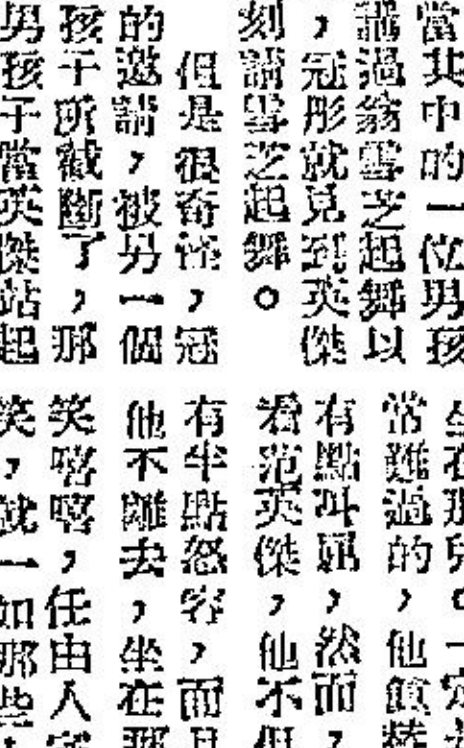 當其中的一位男孩
請過翁雪芝起舞以
，冠彤就見到英傑
刻請雪芝起舞。
但是很奇怪，冠
的邀請，被另一個
孩子所截斷了，那
男孩子當英傑站起
坐在那兒。一定
常難過的，他
有點叫屈，然而，
看范英傑，他不但
有半點怒容，而且
他不離去，坐在那
笑嘻嘻，任由人
笑，就一如那些